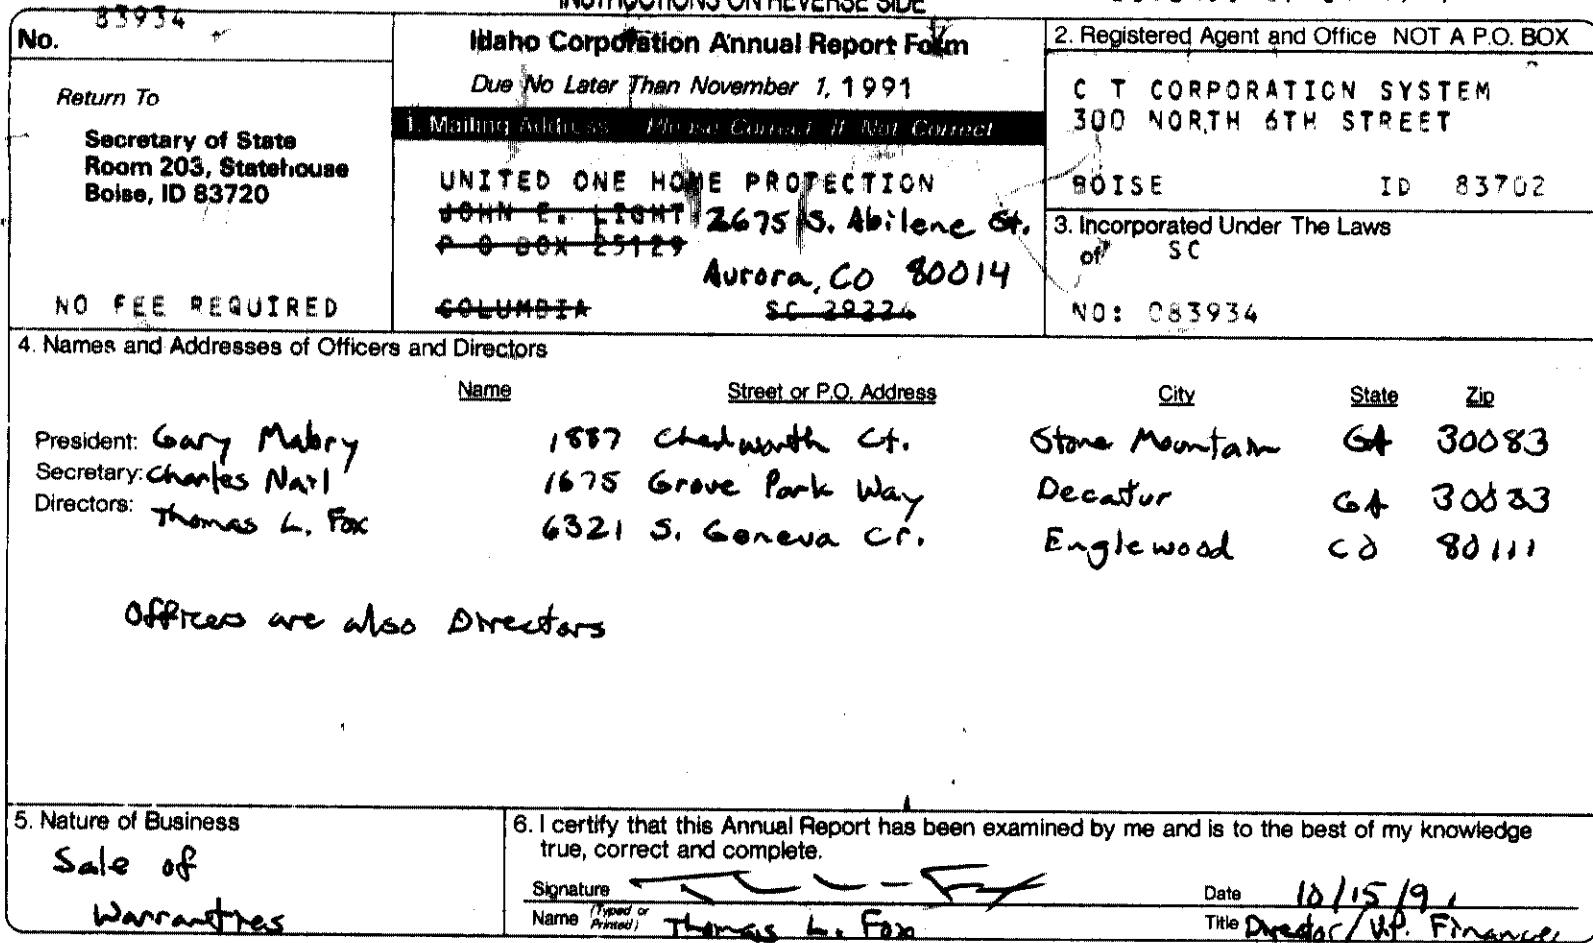 INSTRUCTIONS ON REVERSE SIDE
No. 83934
Return To
Secretary of State
Room 203, Statehouse
Boise, ID 83720
NO FEE REQUIRED
Idaho Corporation Annual Report Form
Due No Later Than November 1, 1991
1. Mailing Address Please Correct If Not Correct
UNITED ONE HOME PROTECTION
JOHN E. LIGHT 2675 S. Abilene St.
P O BOX 25129
Aurora, CO 80014
COLUMBIA SC 29224
2. Registered Agent and Office NOT A P.O. BOX
C T CORPORATION SYSTEM
300 NORTH 6TH STREET
BOISE ID 83702
3. Incorporated Under The Laws
of SC
NO: 083934
4. Names and Addresses of Officers and Directors
Name Street or P.O. Address City State Zip
President: Gary Mabry 1887 Chedworth Ct. Stone Mountain GA 30083
Secretary: Charles Nail 1675 Grove Park Way Decatur GA 30033
Directors: Thomas L. Fox 6321 S. Geneva Cr. Englewood CO 80111
Officers are also Directors
5. Nature of Business
Sale of
Warranties
6. I certify that this Annual Report has been examined by me and is to the best of my knowledge
true, correct and complete.
Signature Date 10/15/91
Name (Typed or Printed) Thomas L. Fox Title Director/V.P. Finance